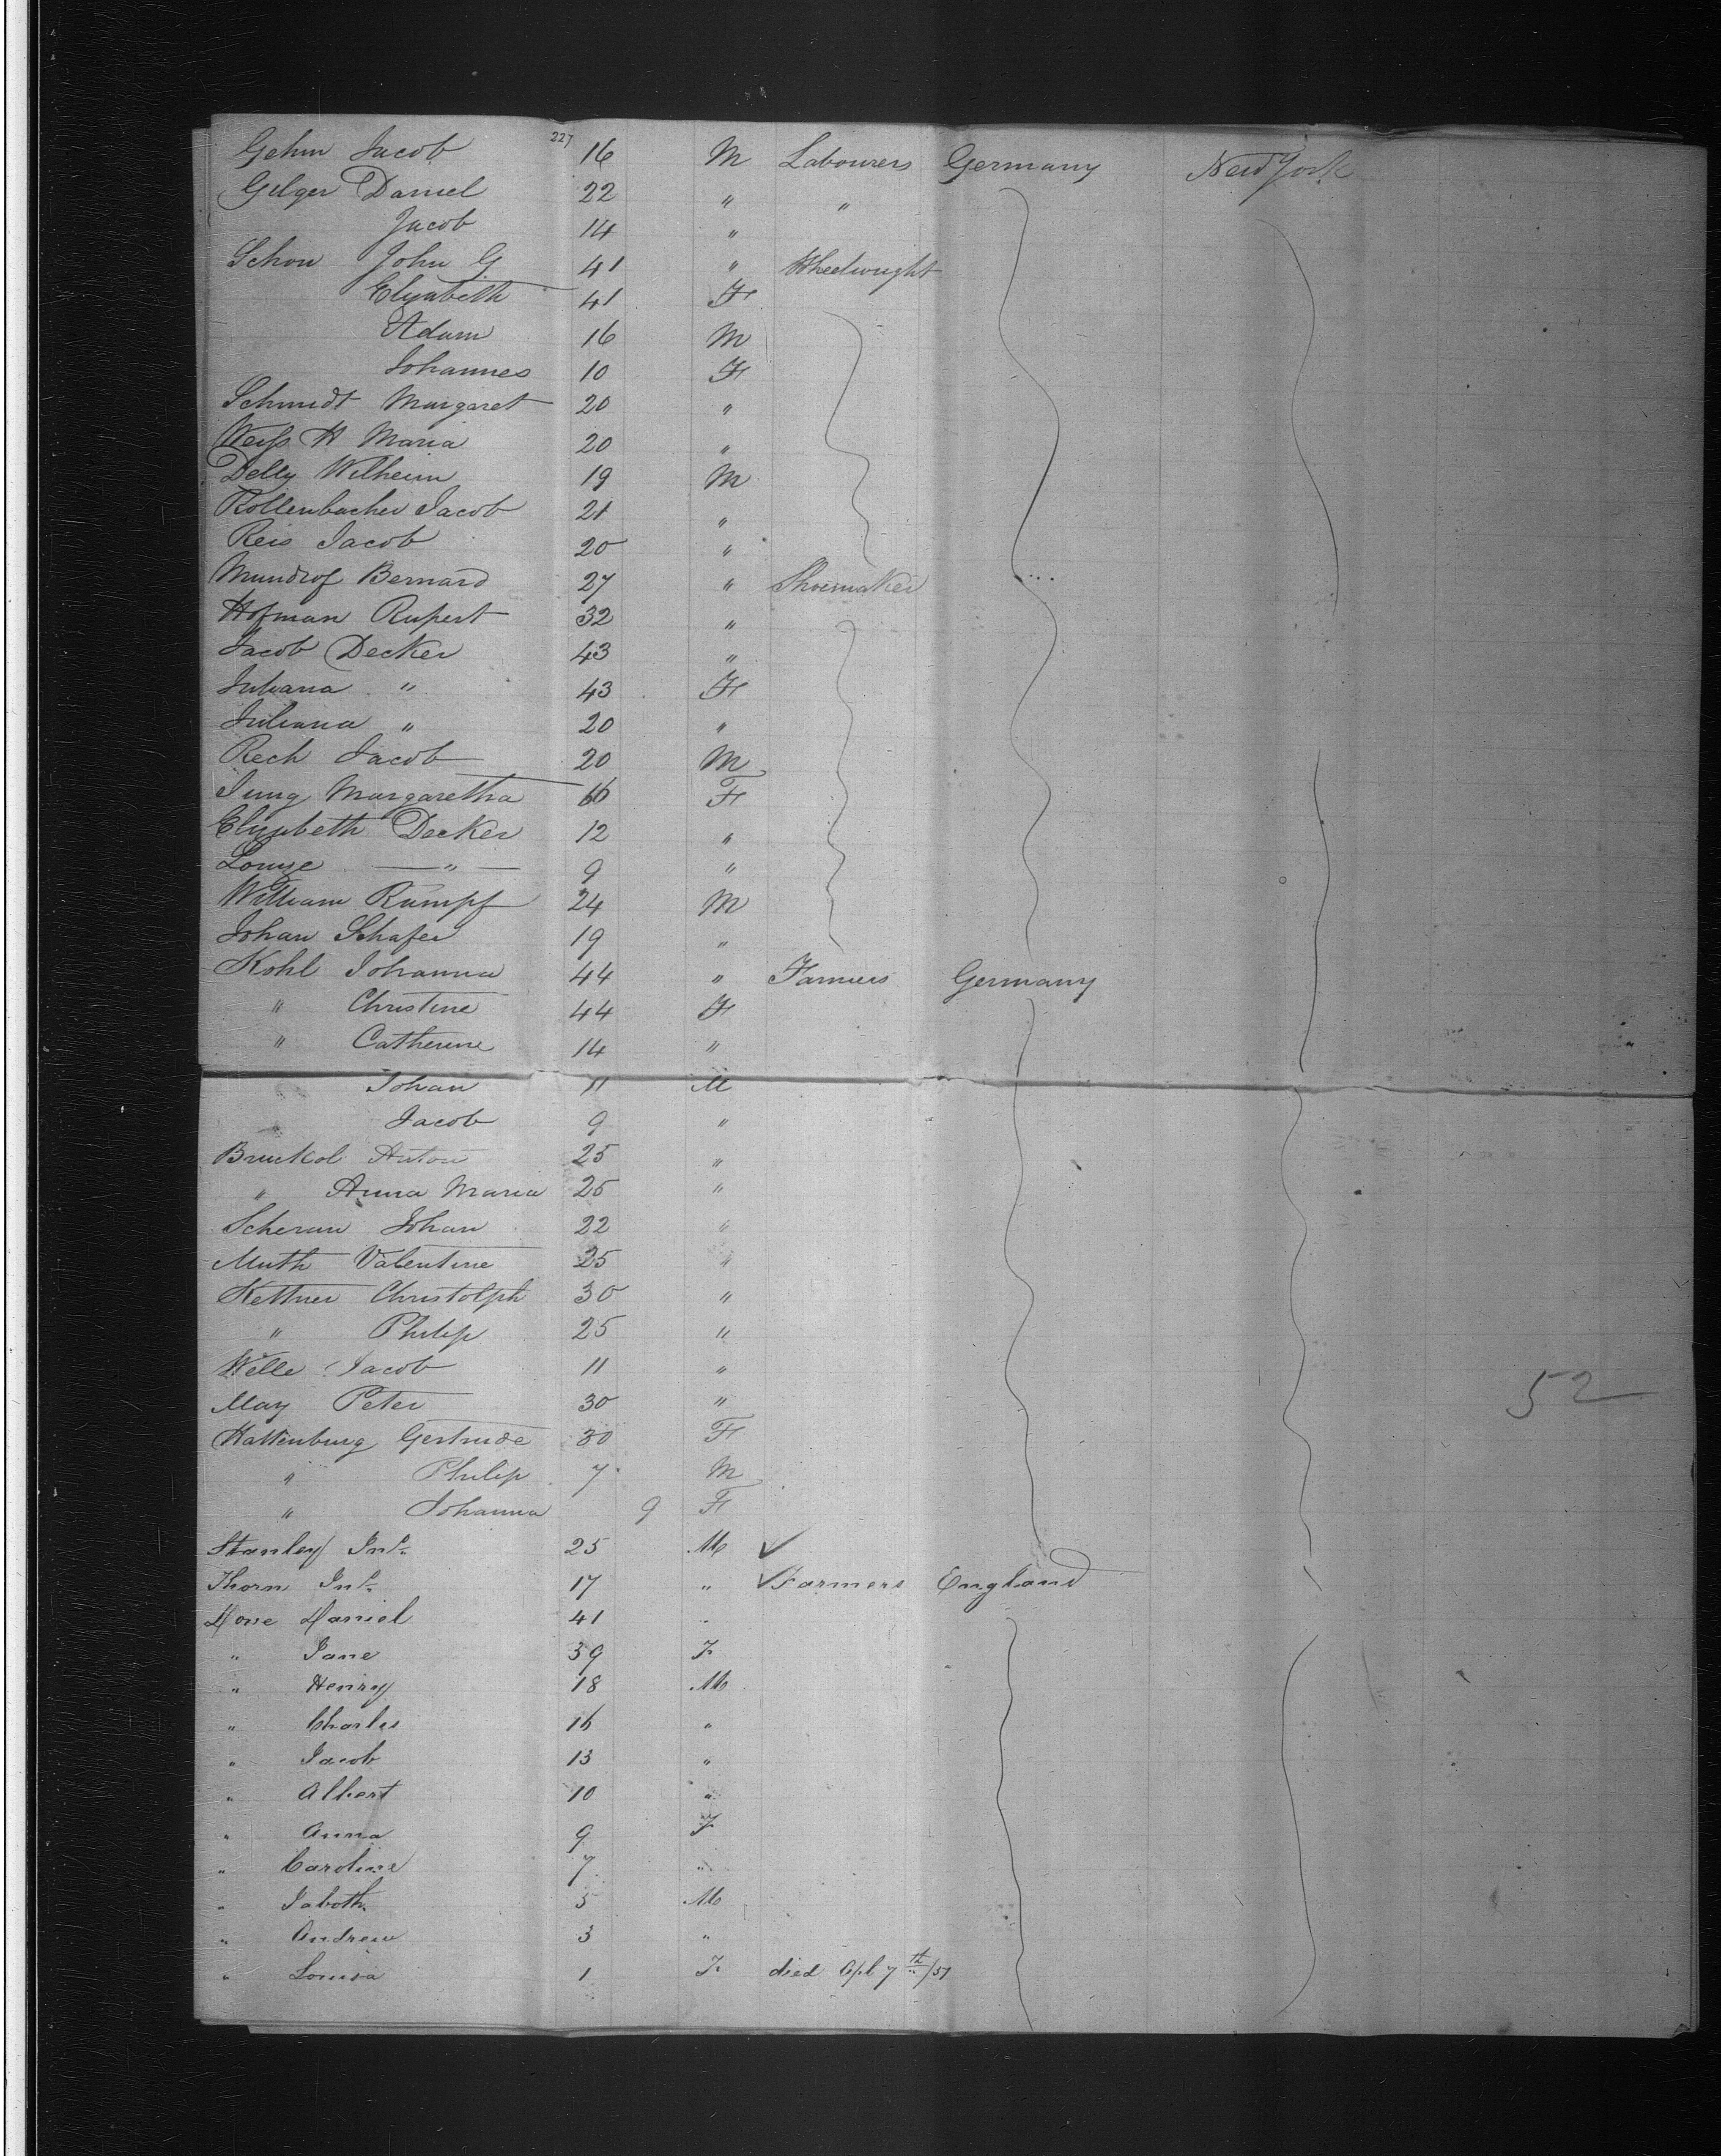 Gehm Jacob 227 16 M Labourers Germany New York
Gilger Daniel 22 " "
Jacob 14 "
Schon John G 41 " Wheelwright
Elizabeth 41 F
Adam 16 M
Johannes 10 F
Schmidt Margaret 20 "
Weiss H Maria 20 "
Delly Wilheim 19 M
Rollenbacher Jacob 21 "
Reis Jacob 20 "
Mundrof Bernard 27 " Shoemaker
Hofman Rupert 32 "
Jacob Decker 43 "
Juliana " 43 F
Juliana " 20 "
Rech Jacob 20 M
Jung Margaretha 16 F
Elizabeth Decker 12 "
Louize " 9 "
William Rumpf 24 M
Johan Schafer 19 "
Kohl Johanna 44 " Farmers Germany
" Christine 44 F
" Catherine 14 "
Johan 11 M
" Jacob 9 "
Bruckol Anton 25 "
" Anna Maria 25 "
Scherun Johan 22 "
Muth Valentine 25 "
Kettner Christolph 30 "
" Philip 25 "
Welle Jacob 11 "
May Peter 30 " 52
Hattenburg Gertrude 30 F
" Philip 7 M
" Johanna 9 F
Stanley Jno. 25 M ✓
Thorn Jno. 17 " ✓ Farmers England
Dove Daniel 41 "
" Jane 39 F
" Henry 18 M
" Charles 16 "
" Jacob 13 "
" Albert 10 "
" Anna 9 F
" Caroline 7 "
" Jaboth 5 M
" Andrew 3 "
" Louisa 1 F died Apl 7th/51